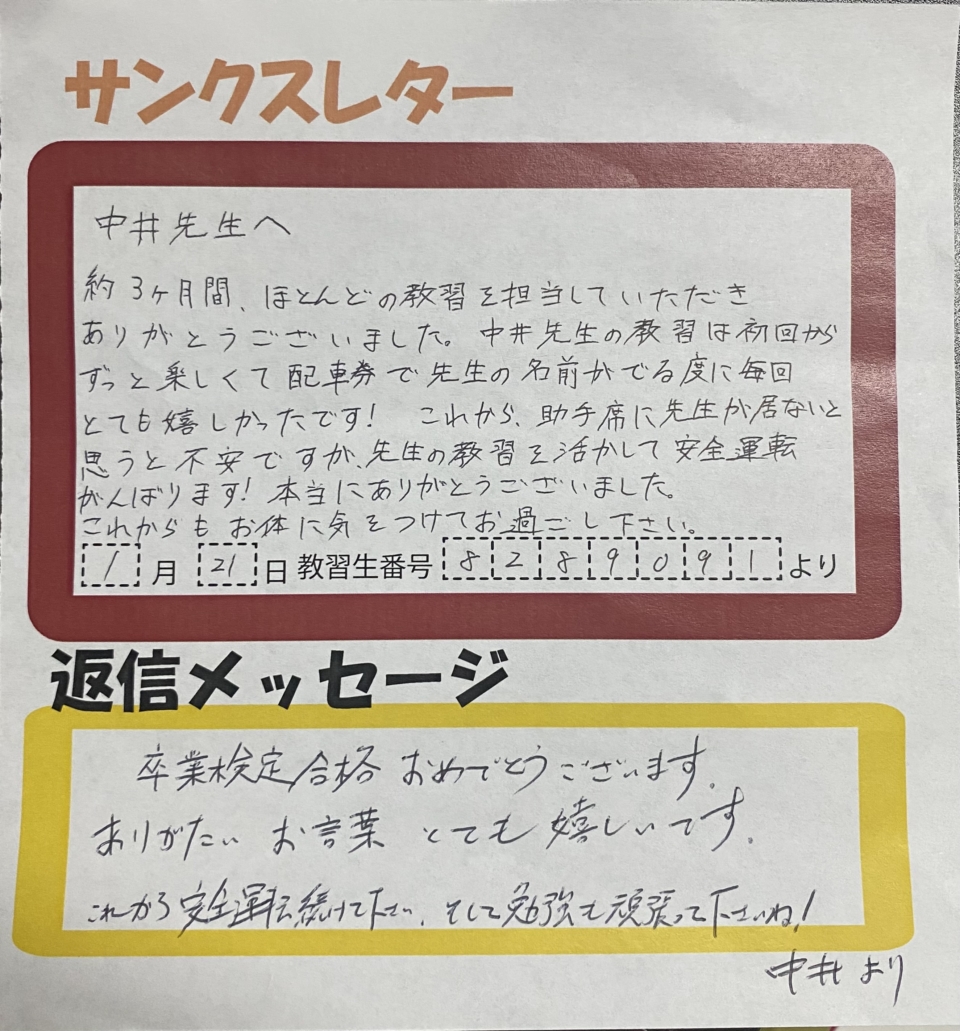 サンクスレター
中井先生へ
約3ヶ月間、ほとんどの教習を担当していただき
ありがとうございました。中井先生の教習は初回から
ずっと楽しくて配車券で先生の名前がでる度に毎回
とても嬉しかったです! これから、助手席に先生が居ないと
思うと不安ですが、先生の教習を活かして安全運転
がんばります!本当にありがとうございました。
これからもお体に気をつけてお過ごし下さい。
1月21日教習生番号8289091より
返信メッセージ
卒業検定合格おめでとうございます。
ありがたいお言葉とても嬉しいです。
これから安全運転続けて下さい、そして勉強も頑張って下さいね!
中井より